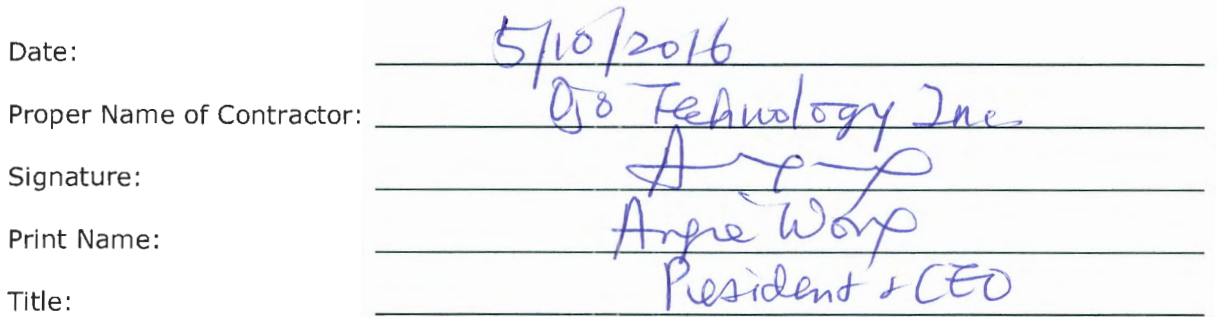 Date: 5/10/2016
Proper Name of Contractor: Ojo Technology Inc
Signature:
Print Name: Angie Wong
Title: President & CEO